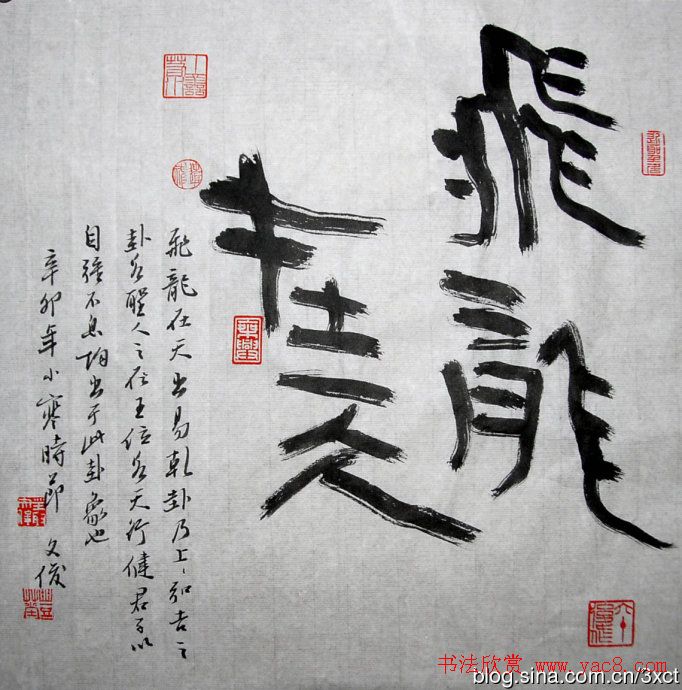 飛龍
在天
飛龍在天出易乾卦乃上上知吉之
卦名聖人之在王位名天行健君子以
自強不息均出于此卦象也
辛卯年小寒時節 文俊
书法欣赏 www.yac8.com
blog.sina.com.cn/3xct